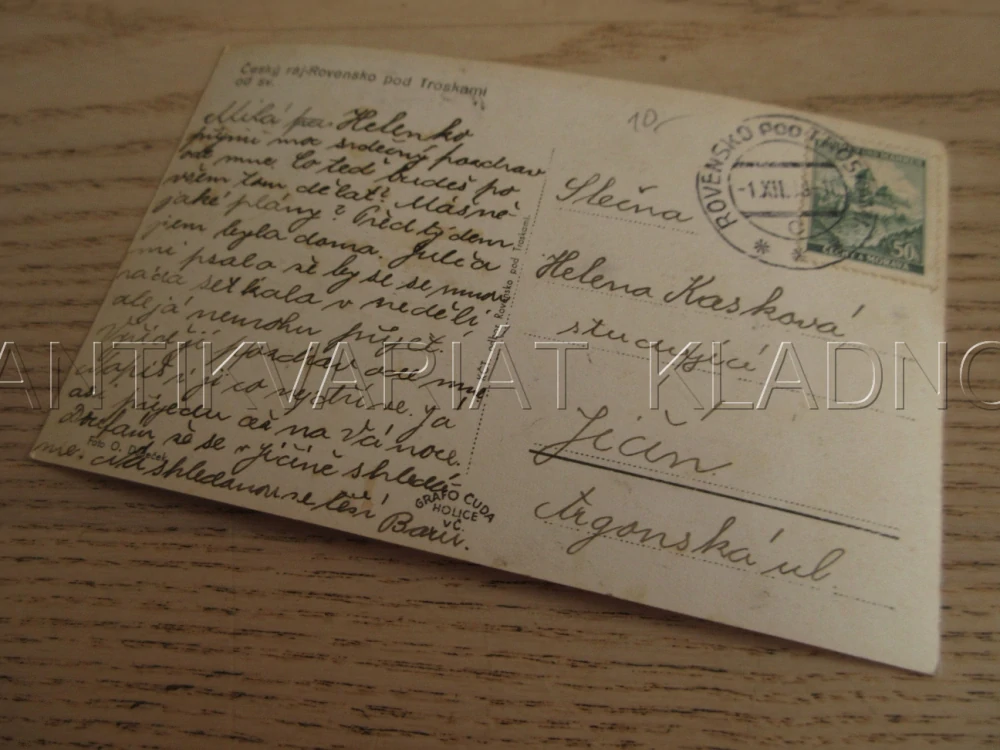 Český ráj-Rovensko pod Troskami
od sv.
Milá Helenko
přijmi moc srdečný pozdrav
ode mne. Co teď budeš po
všem tom dělat? Máš ně-
jaké plány? Před týdnem
jsem byla doma. Julča
mi psala že by se se mnou
ráda setkala v neděli,
ale já nemohu přijet.
pozdrav ode mne
Napiš jí co se. Já
asi přijedu až na Vánoce.
Doufám, že se v Jičíně shledá-
me. Na shledanou se těší
Foto O.
GRAFO ČUDA
HOLICE
v Č.
Rovensko pod Troskami.
10,-
ROVENSKO POD TROSK
-1.XII.
50
ČECHY A MORAVA
Slečna
Helena Kasková
studující
Jičín
Argonská ul.
ANTIKVARIÁT KLADNO